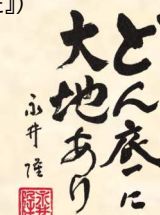 』)
どん底に
大地あり
永井隆